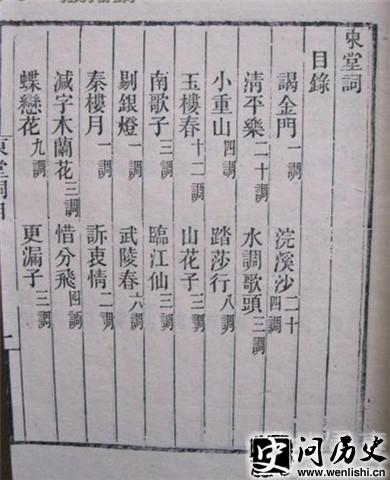 東堂詞
目錄
謁金門一調 浣溪沙二十四調
清平樂二十調 水調歌頭三調
小重山四調 踏莎行八調
玉樓春十二調 山花子三調
南歌子三調 臨江仙三調
剔銀燈一調 武陵春六調
秦樓月一調 訴衷情二調
減字木蘭花三調 惜分飛四調
蝶戀花九調 更漏子三調
東堂詞目
一
史问历史
www.wenlishi.cn